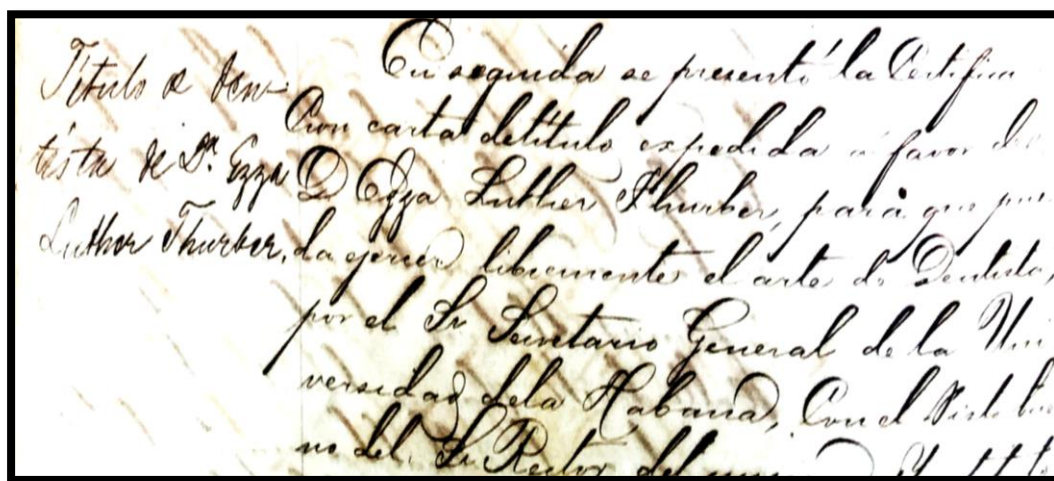 Título de Den-
tista de Dn. Ezza
Luther Thurber.
En seguida se presentó la Certifica
cion carta detítulo expedida á favor de
D Ezza Luther Thurber, para que pue
da ejercer libremente el arte de Dentista,
por el Sr Secretario General de la Uni
versidad dela Habana, Con el Visto bue
no del Sr Rector del